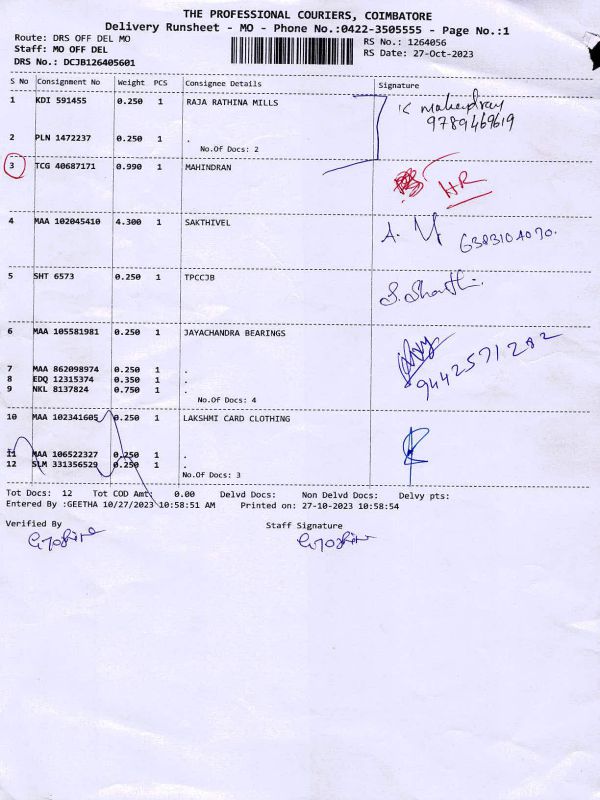 THE PROFESSIONAL COURIERS, COIMBATORE
Delivery Runsheet - MO - Phone No.:0422-3505555 - Page No.:1
Route: DRS OFF DEL MO RS No.: 1264056
Staff: MO OFF DEL RS Date: 27-Oct-2023
DRS No.: DCJB126405601
S No Consignment No Weight PCS Consignee Details Signature
1 KDI 591455 0.250 1 RAJA RATHINA MILLS
9789469619
2 PLN 1472237 0.250 1 .
No.Of Docs: 2
3 TCG 40687171 0.990 1 MAHINDRAN
HR
4 MAA 102045410 4.300 1 SAKTHIVEL
6383104070.
5 SHT 6573 0.250 1 TPCCJB
6 MAA 105581981 0.250 1 JAYACHANDRA BEARINGS
9442571282
7 MAA 862098974 0.250 1 .
8 EDQ 12315374 0.350 1 .
9 NKL 8137824 0.750 1 .
No.Of Docs: 4
10 MAA 102341605 0.250 1 LAKSHMI CARD CLOTHING
11 MAA 106522327 0.250 1 .
12 SLM 331356529 0.250 1 .
No.Of Docs: 3
Tot Docs: 12 Tot COD Amt: 0.00 Delvd Docs: Non Delvd Docs: Delvy pts:
Entered By :GEETHA 10/27/2023 10:58:51 AM Printed on: 27-10-2023 10:58:54
Verified By Staff Signature